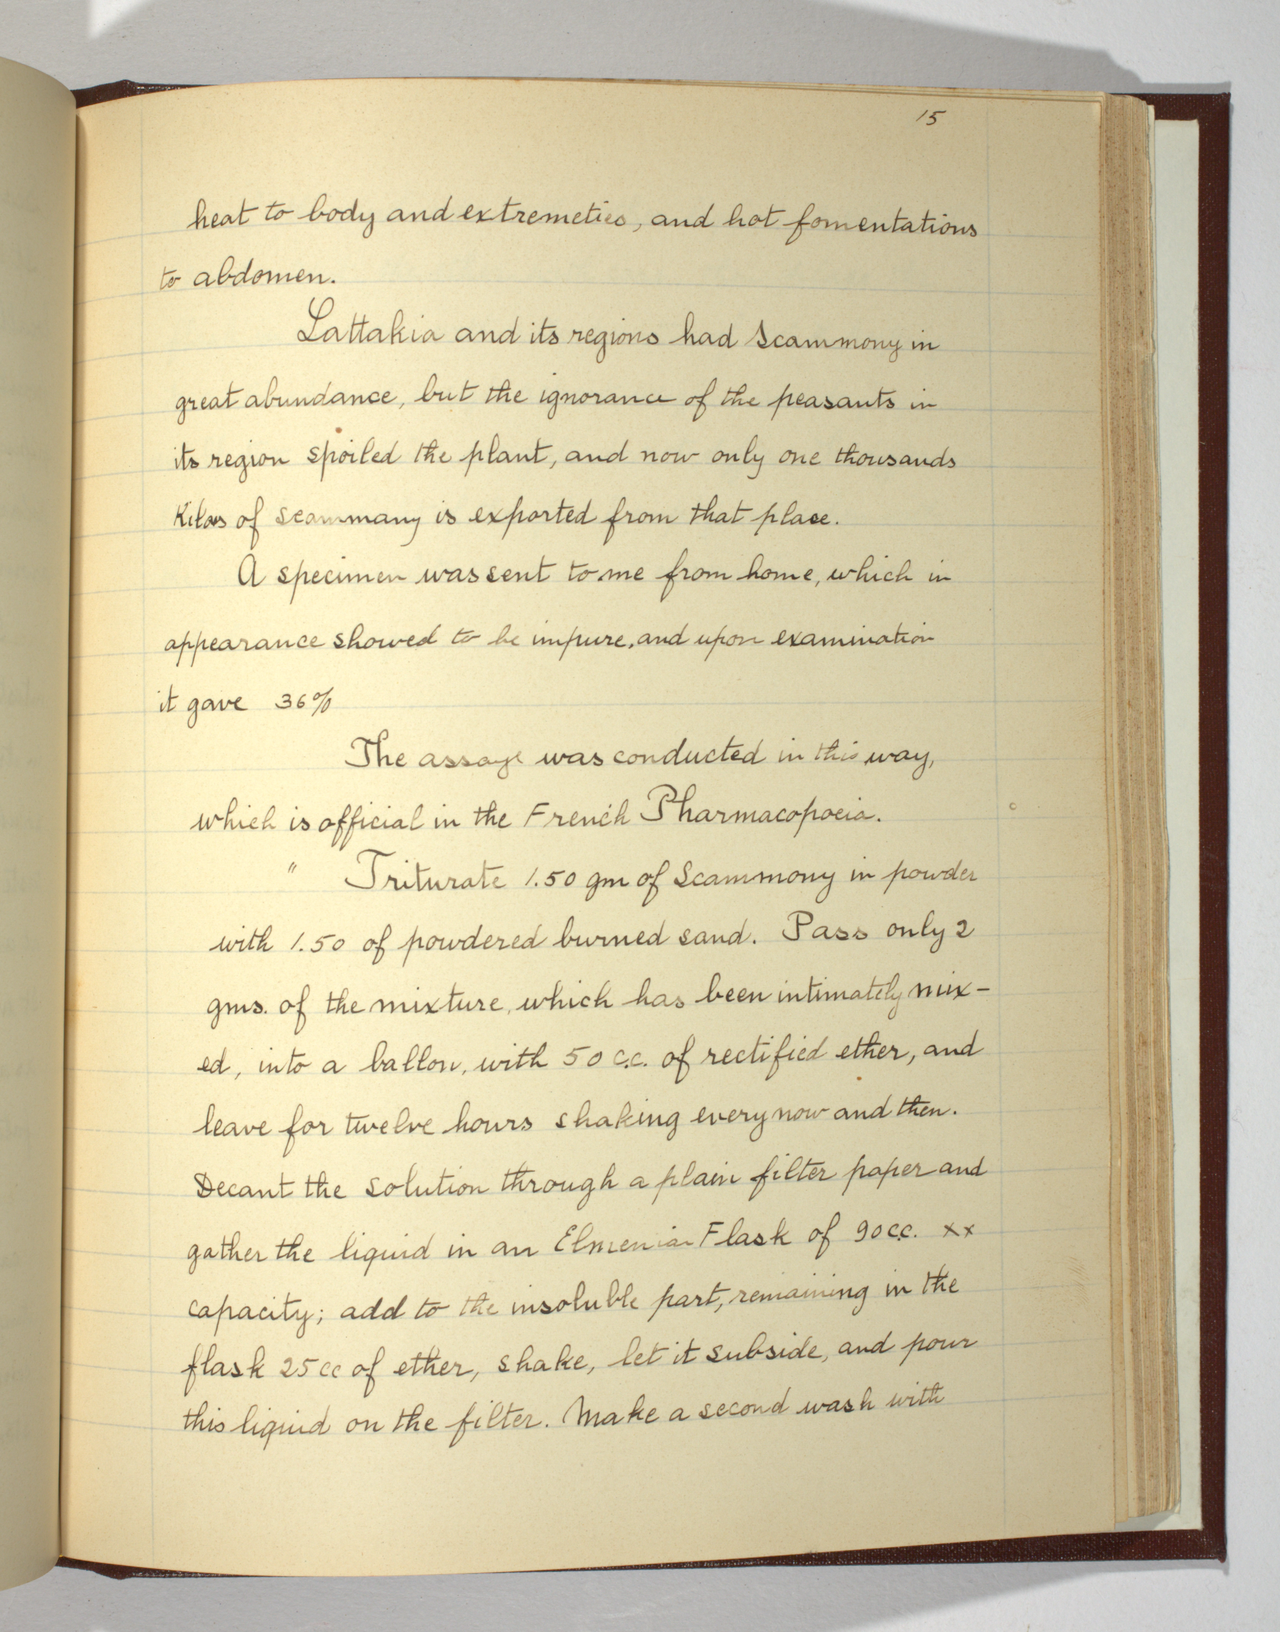 15
heat to body and extremeties, and hot fomentations
to abdomen.
Lattakia and its regions had Scammony in
great abundance, but the ignorance of the peasants in
its region spoiled the plant, and now only one thousands
Kilos of scammany is exported from that place.
A specimen was sent to me from home, which in
appearance showed to be impure, and upon examination
it gave 36%
The assay was conducted in this way,
which is official in the French Pharmacopoeia.
" Triturate 1.50 gm of Scammony in powder
with 1.50 of powdered burned sand. Pass only 2
gms. of the mixture, which has been intimately mix-
ed, into a ballon, with 50 c.c. of rectified ether, and
leave for twelve hours shaking every now and then.
Decant the solution through a plain filter paper and
gather the liquid in an Elmenian Flask of 90 c.c. xx
capacity; add to the insoluble part, remaining in the
flask 25 cc of ether, shake, let it subside, and pour
this liquid on the filter. Make a second wash with